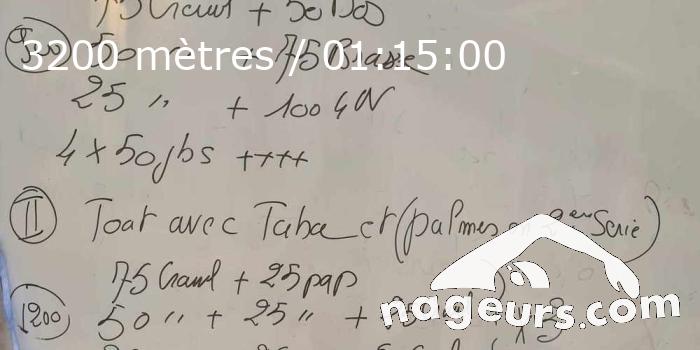 75 Crawl + 50 Dos
3200 mètres / 01:15:00
50 + 75 Brasse
25 " + 100 4N
4 x 50 jbs ++++
II Tout avec Tuba et (palmes en 2 eme Serie)
75 Crawl + 25 pap
1200 50 " + 25 " +
nageurs.com